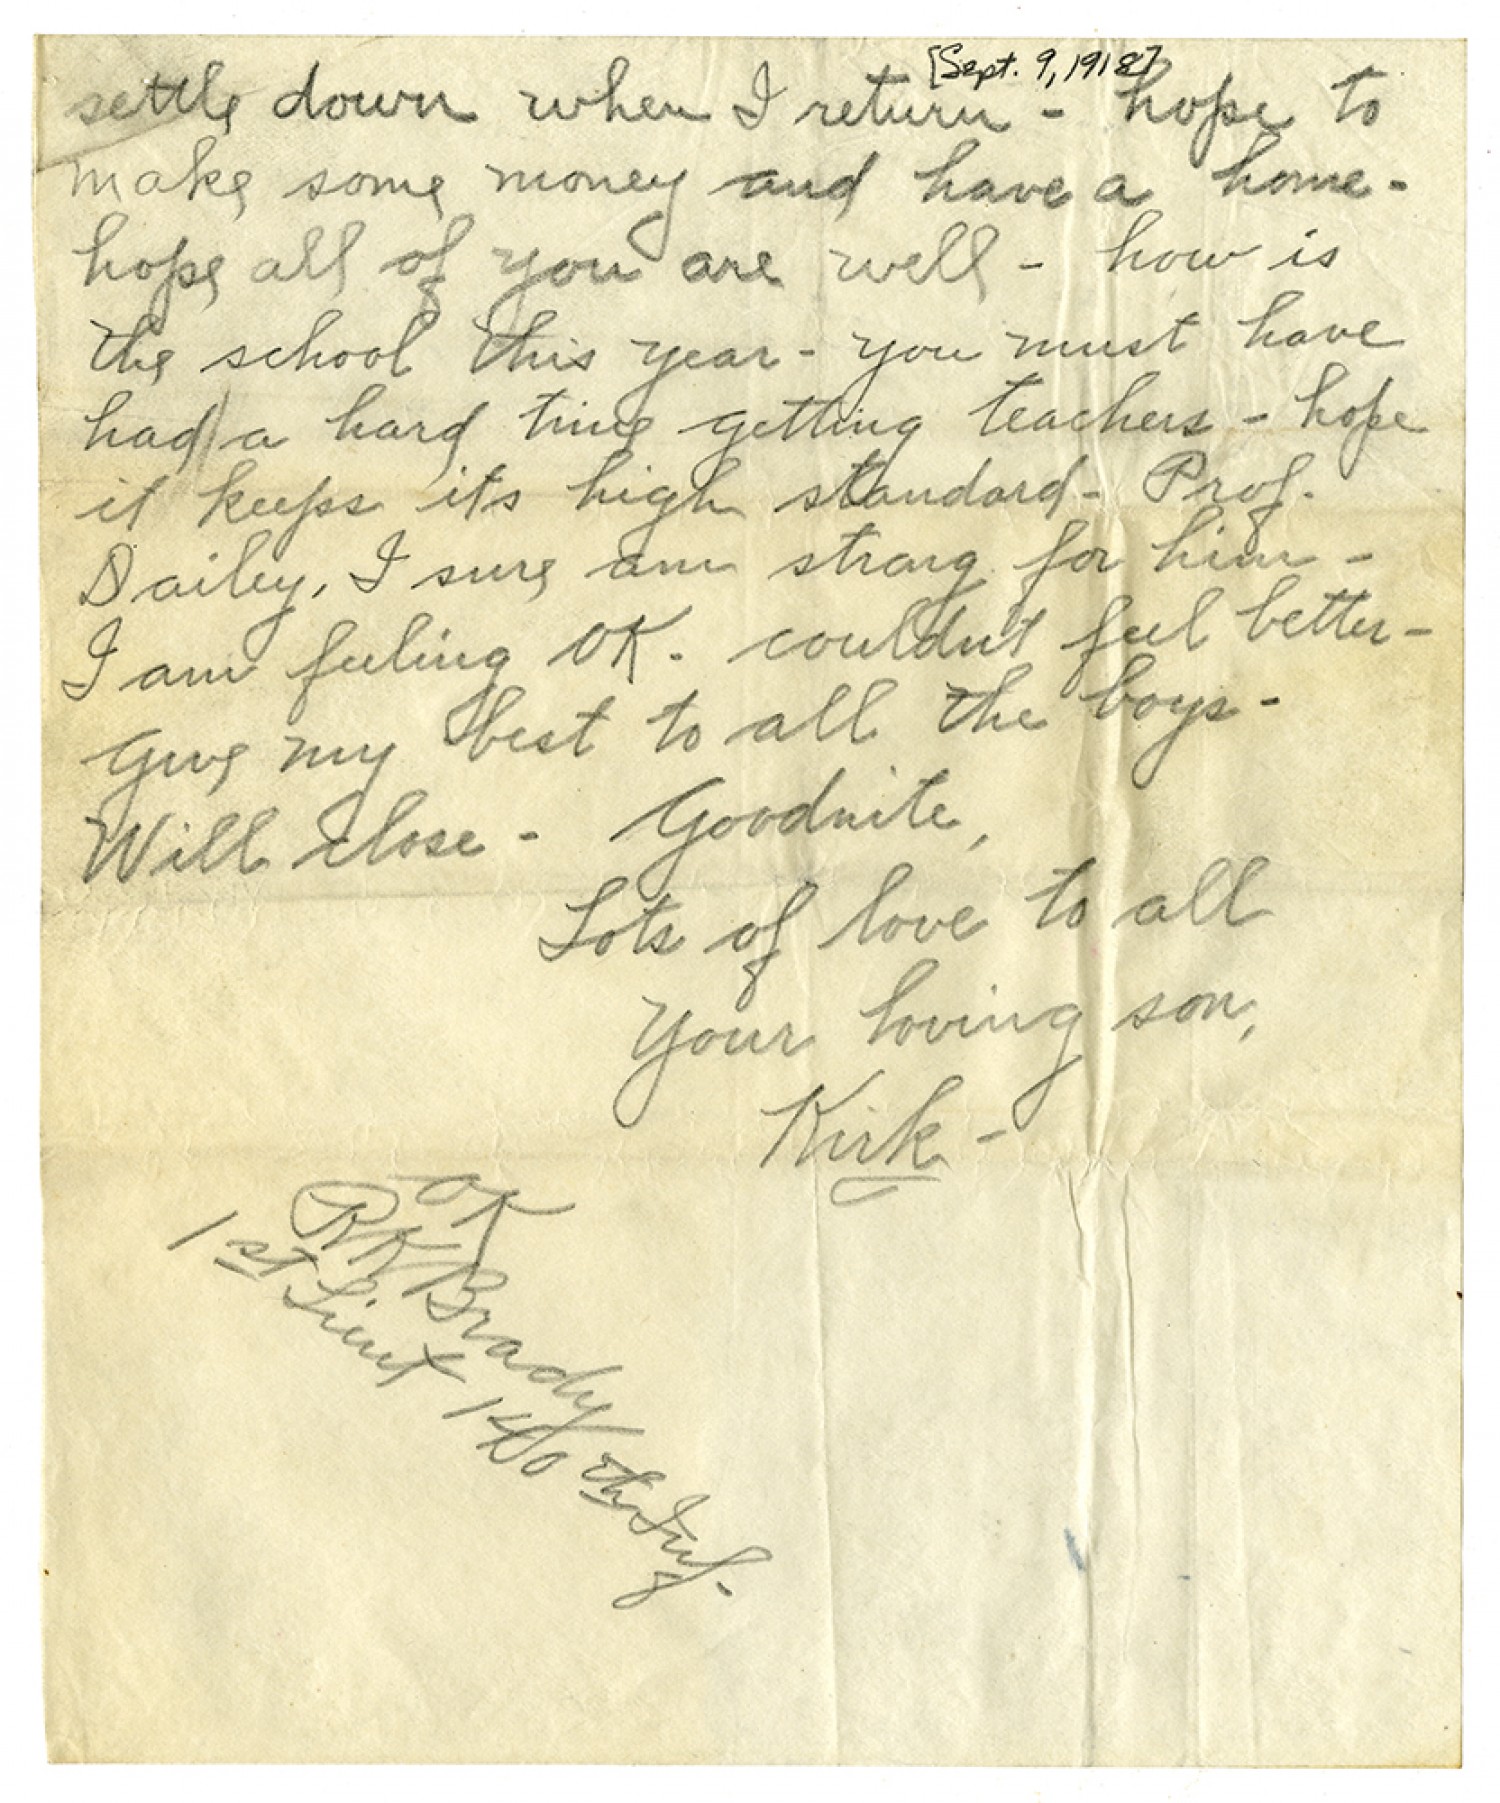 [Sept. 9, 1918]
settle down when I return - hope to
make some money and have a home -
hope all of you are well - how is
the school this year - you must have
had a hard time getting teachers - hope
it keeps its high standard - Prof.
Dailey, I sure am strong for him -
I am feeling OK. couldn't feel better -
Give my best to all the boys -
Will close - Goodnite,
Lots of love to all
Your loving son,
Kirk -
OK
RKBrady
1st Lieut 140th Inf.